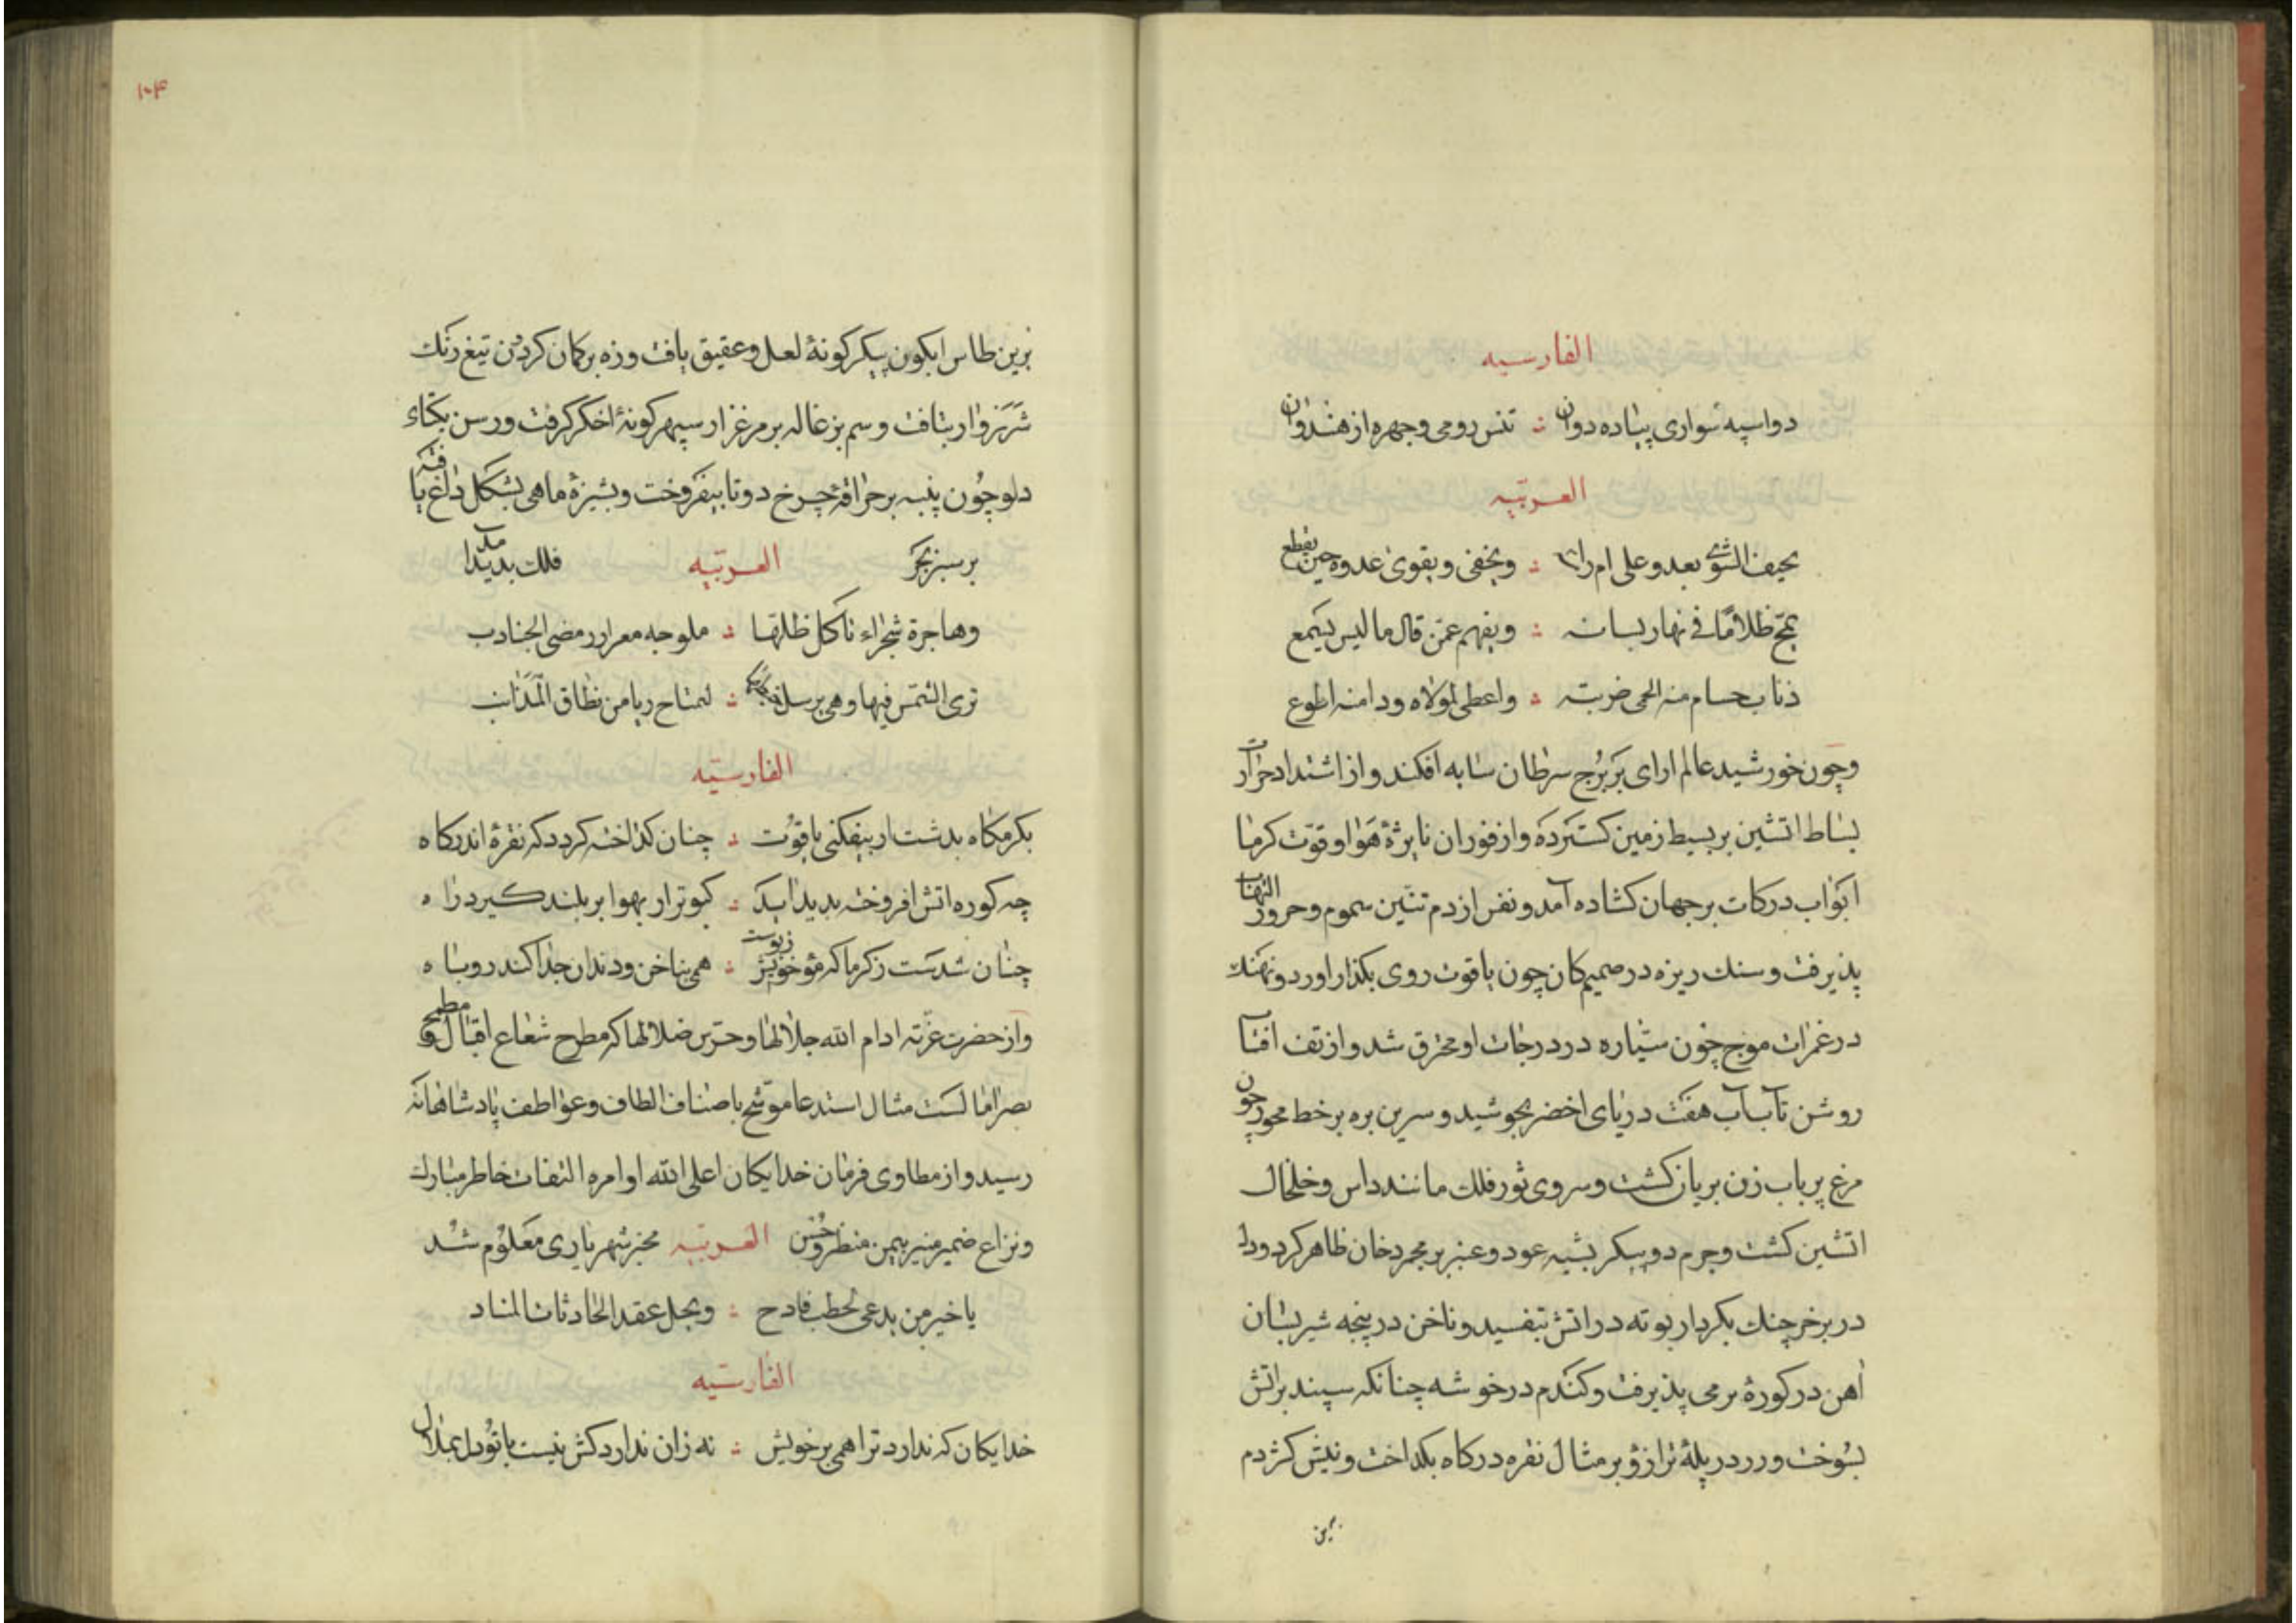 الفارسیه
دواسپه سواری پیاده دوان ؞ تنش رومی و چهره از هندوان
العربیّه
نحیف الشوی یعدو علی ام راسه ؞ ویخفی ویقوی عدوه حین یقطع
یمج ظلامًا فی نهار لسانه ؞ ویفهم عمّن قال ما لیس یسمع
ذباب حسام منه انجی ضریبته ؞ واعطی لمولاه ودامنه اطوع
وچون خورشید عالم ارای بر برج سرطان سایه افکند و از اشتداد حرارت
بساط اتشین بر بسیط زمین کسترده و از فوران نایرهٔ هوا و قوّت کرما
ابواب درکات بر جهان کشاده آمد و نفس از دم تنّین سموم و حرور التهاب
پذیرفت و سنک ریزه در صمیم کان چون یاقوت روی بکداز اورد و نهنک
در غمرات موج چون سیّاره در درجات او محترق شد و از تف افتاب
روشن تاب آب هفت دریای اخضر بجوشید و سرین بره بر خط محور چون
مرغ بر باب زن بریان کشت و سروی ثور فلک مانند داس و خلخال
اتشین کشت و جرم دو پیکر بشبه عود و عنبر بر مجمر دخان ظاهر کرد و دل
در بر خرچنک بکردار بوته در اتش بتفسید و ناخن در پنجه شیر بسان
اهن در کورهٔ نرمی پذیرفت و کندم در خوشه چنانکه سپند بر اتش
بسوخت و زر در پلهٔ ترازو بر مثال نقره در کاه بکداخت و نیش کژدم
برین
۱۰۴
برین طاس ابکون پیکر کونهٔ لعل و عقیق یافت و زه بر کمان کردن تیغ رنک
شرروار بتافت و سم بزغاله بر مرغزار سپهر کونهٔ اخکر کرفت و رسن یکتاء
دلو چون پنبه بر حراقهٔ چرخ دوتا بیفروخت و بشیزهٔ ماهی بشکل داغ یافته
بر سبز بحر العربیّه فلک بدید امد
وهاجرة شجراء تاکل ظلها ؞ ملوحه معرا رمضی الجنادب
تری الشمس فیها وهی ترسل ؞ لتمتاح ریا من نطاق المذانب
الفارسیّه
بکرمکاه بدشت ار بیفکنی یاقوت ؞ چنان کداخته کردد که نقره اندر کاه
چه کوره اتش افروخته بدید اید ؞ کبوتر ار بهوا بر بلند کیرد راه
چنان شدست ز کرما که مو خویش ز پوست ؞ همی بناخن و دندان جدا کند روباه
و از حضرت عزّته ادام الله جلالها و حرّس ضلالها که مطرح شعاع اقبال و مطمح
بصر امالست مثال استدعا موشّح باصناف الطاف و عواطف پادشاهانه
رسید و از مطاوی فرمان خدایکان اعلی الله اوامره التفات خاطر مبارک
و نزاع ضمیر منیر بیمن منظر و حسن العربیّه مخبر شهریاری معلوم شد
یا خیر من یدعی لخطب فادح ؞ ویحل عقد الحادثات المناد
الفارسیّه
خدایکان که ندارد ترا همی بر خویش ؞ نه زان ندارد کش نیست با تو دل بمثال